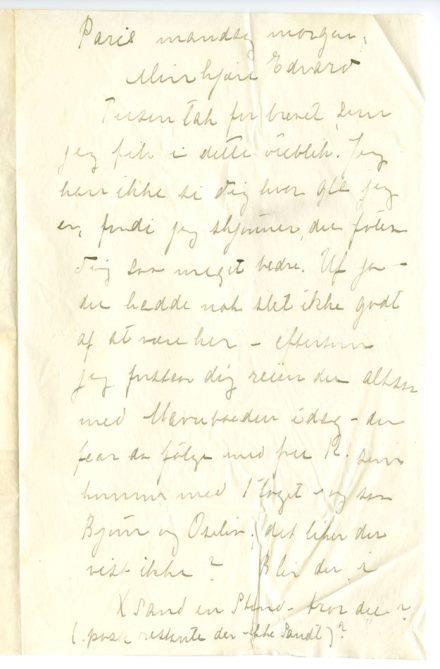 Paris mandag morgen,
Min kjære Edvard
Tusen tak for brevet som
jeg fik i dette öieblik. Jeg
kan ikke si dig hvor gla jeg
er, fordi jeg skjönner du föler
dig saa meget bedre. Uf ja –
du hadde nok slet ikke godt
af at være her – eftersom
jeg forstaar dig reiser du altsaa
med idag – du
faar da fölge med fru R. som
kommer med toget – og saa
Björn og, det liker du
vist ikke? Blir du i
X sand en Stund – tror du?
(poste restante der – ikke sandt)?